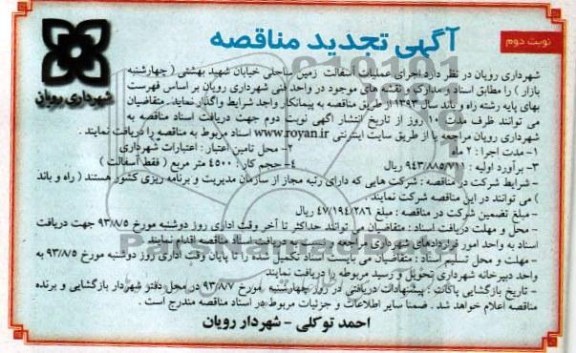 نوبت دوم
آگهی تجدید مناقصه
شهرداری رویان
شهرداری رویان در نظر دارد اجرای عملیات آسفالت زمین ساحلی خیابان شهید بهشتی ( چهارشنبه
بازار ) را مطابق اسناد و مدارک و نقشه های موجود در واحد فنی شهرداری رویان بر اساس فهرست
بهای پایه رشته راه و باند سال ۱۳۹۳ از طریق مناقصه به پیمانکار واجد شرایط واگذار نماید. متقاضیان
می توانند ظرف مدت روز از تاریخ انتشار آگهی نوبت دوم جهت دریافت اسناد مناقصه به
شهرداری رویان مراجعه یا از طریق سایت اینترنتی www.royan.ir اسناد مربوط به مناقصه را دریافت نمایند .
۱- مدت اجرا : ۲ ماه ۲- محل تامین اعتبار : اعتبارات شهرداری
۳- برآورد اولیه : ۹۴۳/۸۸۵/۷۱۱ ریال ۴- حجم کار : ۴۵۰۰ متر مربع ( فقط آسفالت )
- شرایط شرکت در مناقصه : شرکت هایی که دارای رتبه مجاز از سازمان مدیریت و برنامه ریزی کشور هستند ( راه و باند
) می توانند در این مناقصه شرکت نمایند .
- مبلغ تضمین شرکت در مناقصه : مبلغ ۴۷/۱۹۴/۲۸۶ ریال
- محل و مهلت دریافت اسناد : متقاضیان می توانند حداکثر تا آخر وقت اداری روز دوشنبه مورخ ۹۳/۸/۵ جهت دریافت
اسناد به واحد امور قراردادهای شهرداری مراجعه و نسبت به دریافت اسناد مناقصه اقدام نمایند
- مهلت و محل تسلیم اسناد : متقاضیان می بایست اسناد تکمیل شده را تا پایان وقت اداری روز دوشنبه مورخ ۹۳/۸/۵ به
واحد دبیرخانه شهرداری تحویل و رسید مربوطه را دریافت نمایند
- تاریخ بازگشایی پاکات : پیشنهادات دریافتی در روز چهارشنبه مورخ ۹۳/۸/۷ در محل دفتر شهردار بازگشایی و برنده
مناقصه اعلام خواهد شد . ضمنا سایر اطلاعات و جزئیات مربوط در اسناد مناقصه مندرج است .
احمد توکلی - شهردار رویان